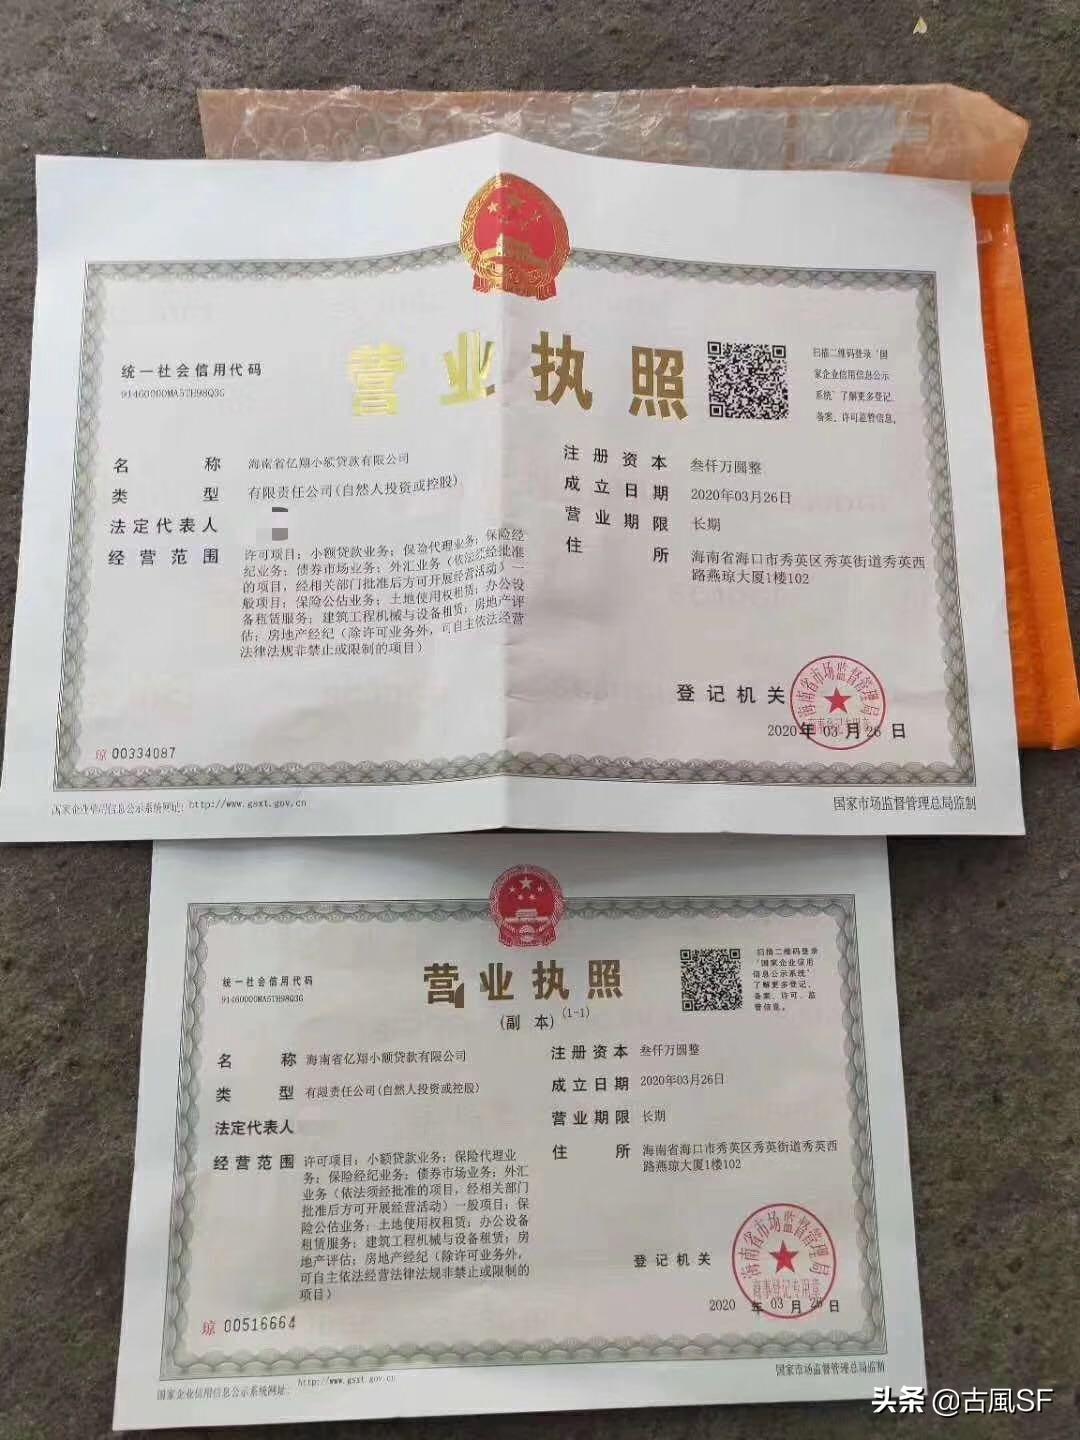 统一社会信用代码
91460000MA5TH98Q3G
营业执照
扫描二维码登录‘国
家企业信用信息公示
系统’了解更多登记、
备案、许可监管信息。
名称 海南省亿翔小额贷款有限公司
类型 有限责任公司(自然人投资或控股)
法定代表人
经营范围 许可项目：小额贷款业务；保险代理业务；保险经
纪业务；债券市场业务；外汇业务（依法须经批准
的项目，经相关部门批准后方可开展经营活动）一
般项目：保险公估业务；土地使用权租赁；办公设
备租赁服务；建筑工程机械与设备租赁；房地产评
估；房地产经纪（除许可业务外，可自主依法经营
法律法规非禁止或限制的项目）
注册资本 叁仟万圆整
成立日期 2020年03月26日
营业期限 长期
住所 海南省海口市秀英区秀英街道秀英西
路燕琼大厦1楼102
登记机关
海南省市场监督管理局
商事登记专用章
2020年03月26日
琼00334087
国家企业信用信息公示系统网址：http://www.gsxt.gov.cn
国家市场监督管理总局监制
统一社会信用代码
91460000MA5TH98Q3G
营业执照
(副本)(1-1)
扫描二维码登录
‘国家企业信用
信息公示系统’
了解更多登记、
备案、许可、监
管信息。
名称 海南省亿翔小额贷款有限公司
类型 有限责任公司(自然人投资或控股)
法定代表人
经营范围 许可项目：小额贷款业务；保险代理业
务；保险经纪业务；债券市场业务；外汇
业务（依法须经批准的项目，经相关部门
批准后方可开展经营活动）一般项目：保
险公估业务；土地使用权租赁；办公设备
租赁服务；建筑工程机械与设备租赁；房
地产评估；房地产经纪（除许可业务外，
可自主依法经营法律法规非禁止或限制的
项目）
注册资本 叁仟万圆整
成立日期 2020年03月26日
营业期限 长期
住所 海南省海口市秀英区秀英街道秀英西
路燕琼大厦1楼102
登记机关
海南省市场监督管理局
商事登记专用章
2020年03月26日
琼00516664
国家企业信用信息公示系统网址：http://www.gsxt.gov.cn
国家市场监督管理总局监制
头条 @古風SF